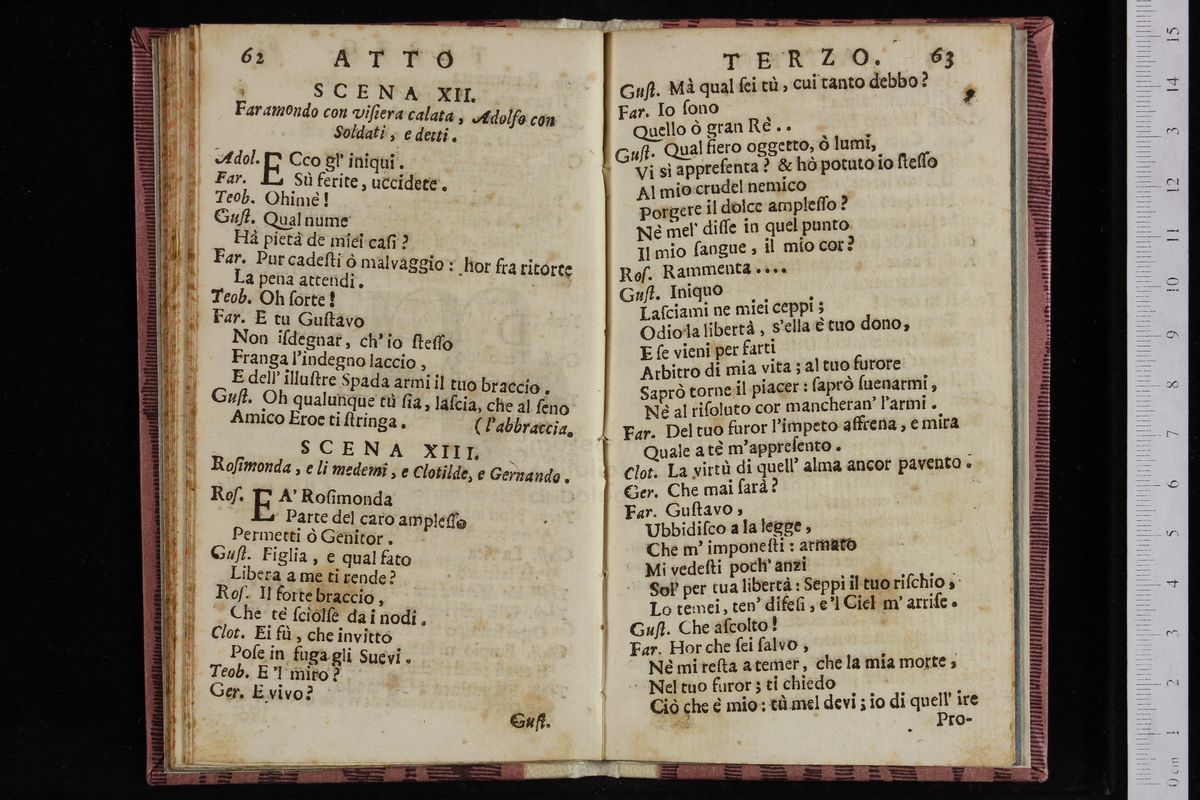 62 ATTO
SCENA XII.
Faramondo con visiera calata, Adolfo con
Soldati, e detti.
Adol. ECco gl' iniqui.
Far. Sù ferite, uccidete.
Teob. Ohimè!
Gust. Qual nume
Hà pietà de miei casi?
Far. Pur cadesti ò malvaggio: hor fra ritorte
La pena attendi.
Teob. Oh sorte!
Far. E tu Gustavo
Non isdegnar, ch' io stesso
Franga l'indegno laccio,
E dell' illustre Spada armi il tuo braccio.
Gust. Oh qualunque tù sia, lascia, che al seno
Amico Eroe ti stringa. (l'abbraccia.
SCENA XIII.
Rosimonda, e li medemi, e Clotilde, e Gernando.
Ros. EA' Rosimonda
Parte del caro amplesso
Permetti ò Genitor.
Gust. Figlia, e qual fato
Libera a me ti rende?
Ros. Il forte braccio,
Che tè sciolse da i nodi.
Clot. Ei fù, che invitto
Pose in fuga gli Suevi.
Teob. E 'l miro?
Ger. E vivo?
Gust.
TERZO. 63
Gust. Mà qual sei tù, cui tanto debbo?
Far. Io sono
Quello ò gran Rè..
Gust. Qual fiero oggetto, ò lumi,
Vi si appresenta? & hò potuto io stesso
Al mio crudel nemico
Porgere il dolce amplesso?
Nè mel' disse in quel punto
Il mio sangue, il mio cor?
Ros. Rammenta....
Gust. Iniquo
Lasciami ne miei ceppi;
Odio la libertà, s'ella è tuo dono,
E se vieni per farti
Arbitro di mia vita; al tuo furore
Saprò torne il piacer: saprò suenarmi,
Nè al risoluto cor mancheran' l'armi.
Far. Del tuo furor l'impeto affrena, e mira
Quale a tè m'appresento.
Clot. La virtù di quell' alma ancor pavento.
Ger. Che mai sarà?
Far. Gustavo,
Ubbidisco a la legge,
Che m' imponesti: armato
Mi vedesti poch' anzi
Sol' per tua libertà: Seppi il tuo rischio,
Lo temei, ten' difesi, e 'l Ciel m' arrise.
Gust. Che ascolto!
Far. Hor che sei salvo,
Nè mi resta a temer, che la mia morte,
Nel tuo furor; ti chiedo
Ciò che è mio: tù mel devi; io di quell' ire
Pro-
0 cm 1 2 3 4 5 6 7 8 9 10 11 12 3 14 15